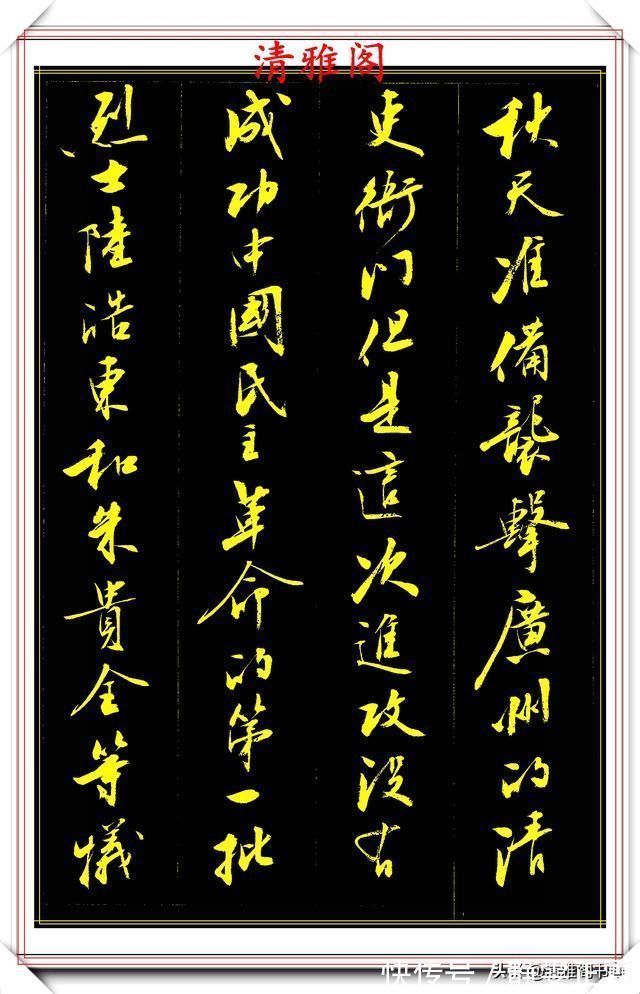 清雅阁
秋天准備襲擊廣州的清
吏衙门但是這次進攻没有
成功中國民主革命的第一批
烈士陸浩東和朱貴全等犠
快传号